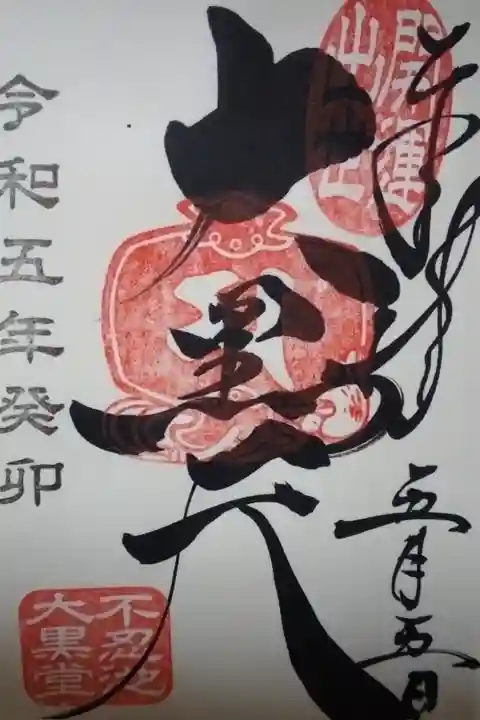 開運
出世
奉拝
五月五日
大黒天
令和五年癸卯
不忍池
大黒堂